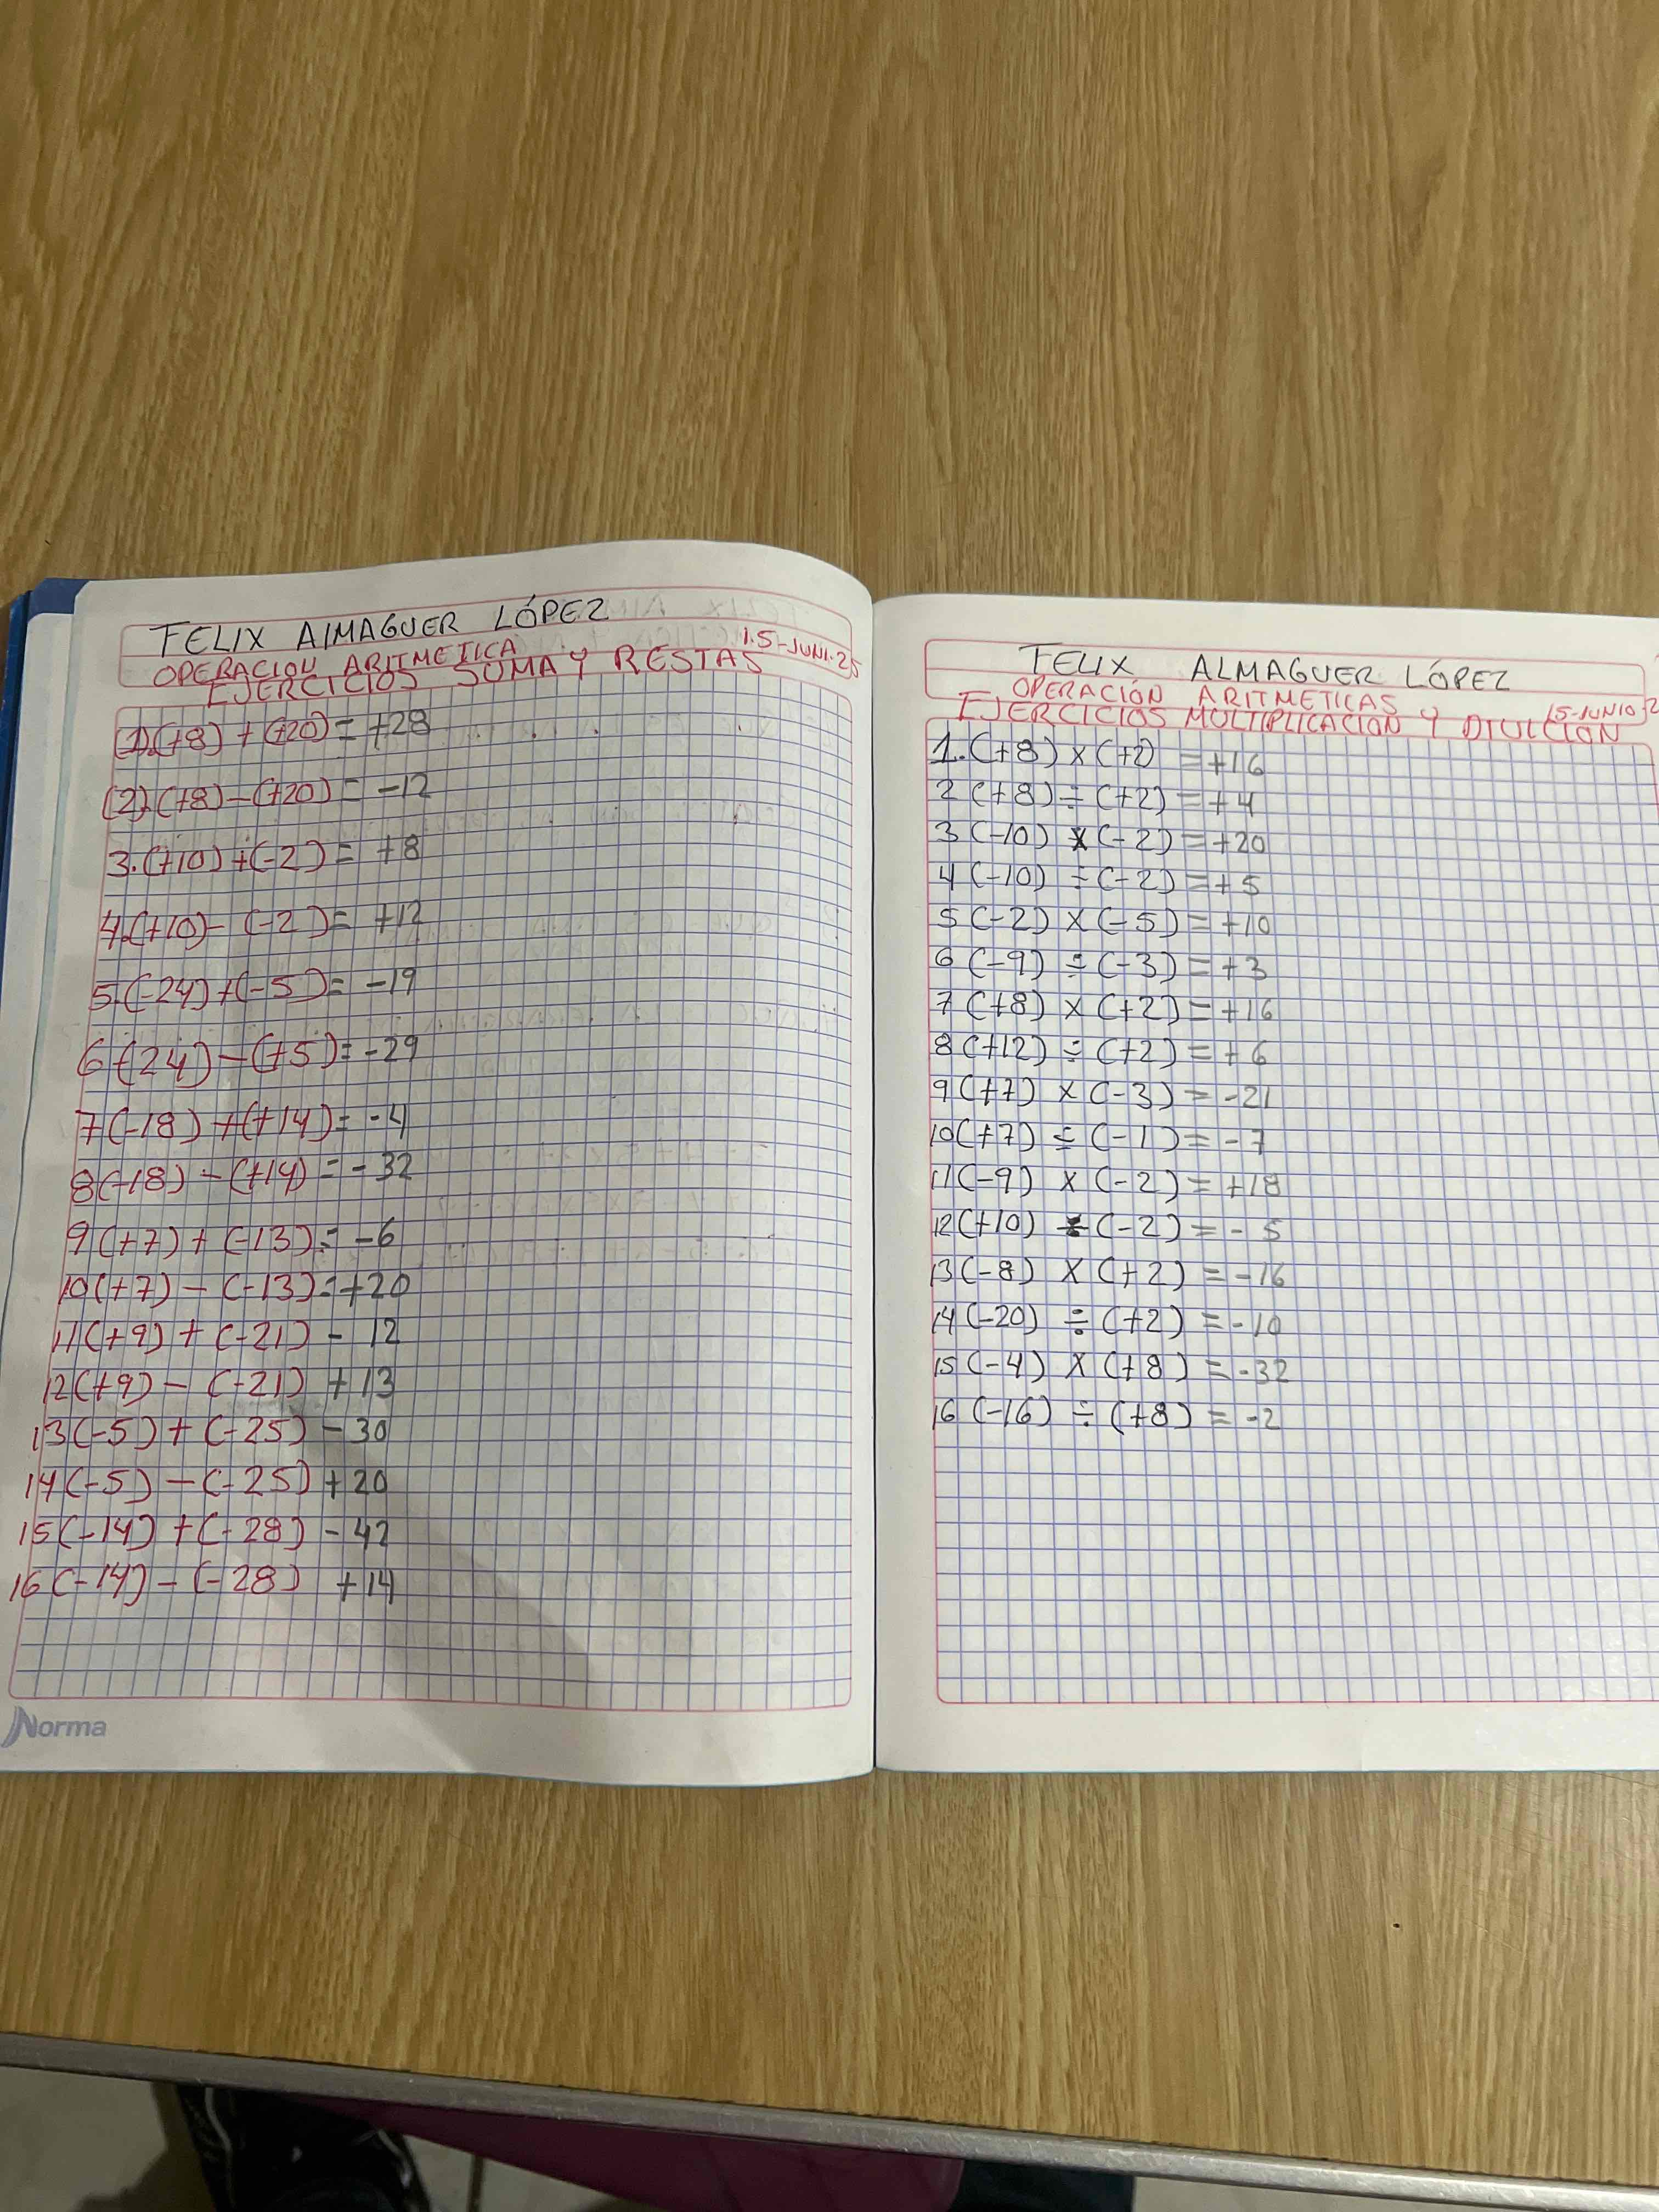 FELIX AlMAGUER LÓPEZ
OPERACION ARITMETICA 15-JUNI-25
EJERCICIOS SUMA Y RESTAS
(1).(+8) + (+20) = +28
(2).(+8) - (+20) = -12
3.(+10) + (-2) = +8
4.(+10) - (-2) = +12
5.(-24) + (-5) = -19
6 -(24) - (+5) = -29
7(-18) + (+14) = -4
8(-18) - (+14) = -32
9(+7) + (-13) = -6
10(+7) - (-13) = +20
11(+9) + (-21) - 12
12(+9) - (-21) + 13
13(-5) + (-25) - 30
14(-5) - (-25) + 20
15(-14) + (-28) - 42
16(-14) - (-28) + 14
Norma
FELIX ALMAGUER LÓPEZ
OPERACIÓN ARITMETICAS 15-JUNIO-2
EJERCICIOS MULTIPLICACION Y DIUICION
1.(+8) x (+2) = +16
2 (+8) ÷ (+2) = +4
3 (-10) x (-2) = +20
4 (-10) ÷ (-2) = +5
5 (-2) x (-5) = +10
6 (-9) ÷ (-3) = +3
7 (+8) x (+2) = +16
8 (+12) ÷ (+2) = +6
9 (+7) x (-3) = -21
10(+7) ÷ (-1) = -7
11(-9) x (-2) = +18
12(+10) ÷ (-2) = -5
13(-8) x (+2) = -16
14(-20) ÷ (+2) = -10
15(-4) x (+8) = -32
16 (-16) ÷ (+8) = -2